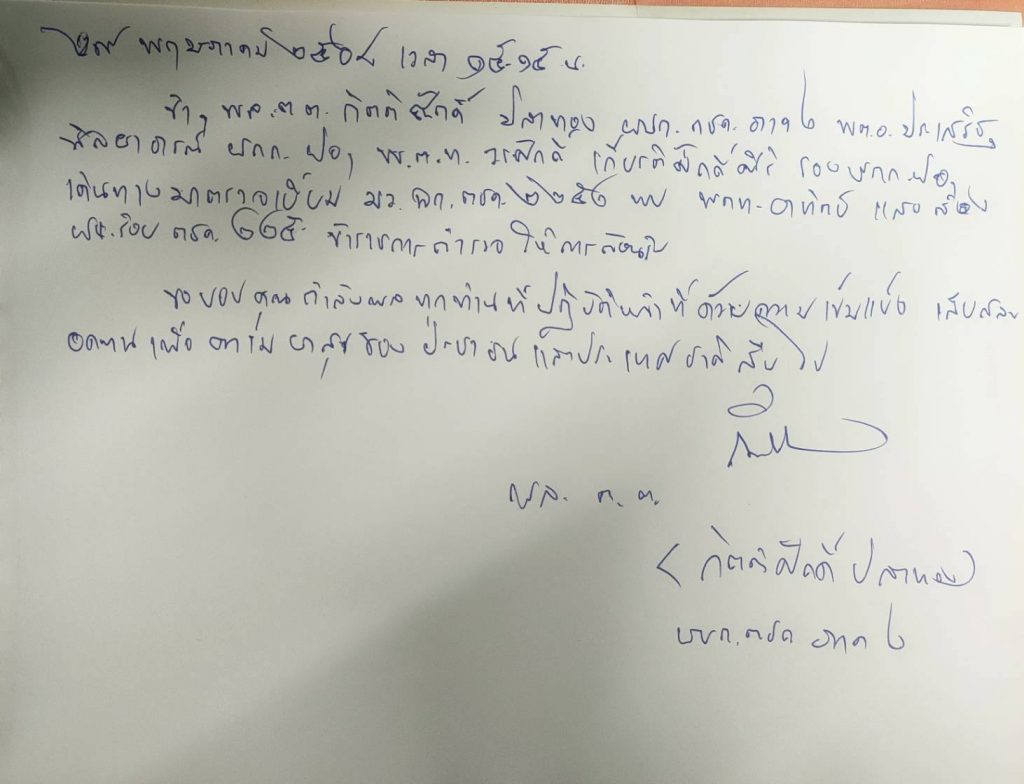 ๒๗ พฤษภาคม ๒๕๖๘ เวลา ๑๕.๑๕ น.
ข้าฯ พล.ต.ต. กิตติศักดิ์ ปลาทอง ผบก. ตชด. ภาค ๒ พ.ต.อ. ประเสริฐ
ผกก. ฝอ, พ.ต.ท. วรศักดิ์ เกียรติศักดิ์ศิริ รอง ผกก. ฝอ,
เดินทางมาตรวจเยี่ยม มว. ฉก. ตชด. ๒๒๕๒ พบ อาทิตย์ แสงส่อง
ผบ.ร้อย ตชด. ๒๒๕ ข้าราชการตำรวจ ให้การต้อนรับ
ขอขอบคุณกำลังพลทุกท่านที่ปฏิบัติหน้าที่ด้วยความเข้มแข็ง เสียสละ
อดทน เพื่อความผาสุขของประชาชน และประเทศชาติสืบไป
พล. ต. ต.
(กิตติศักดิ์ ปลาทอง)
ผบก. ตชด ภาค ๒